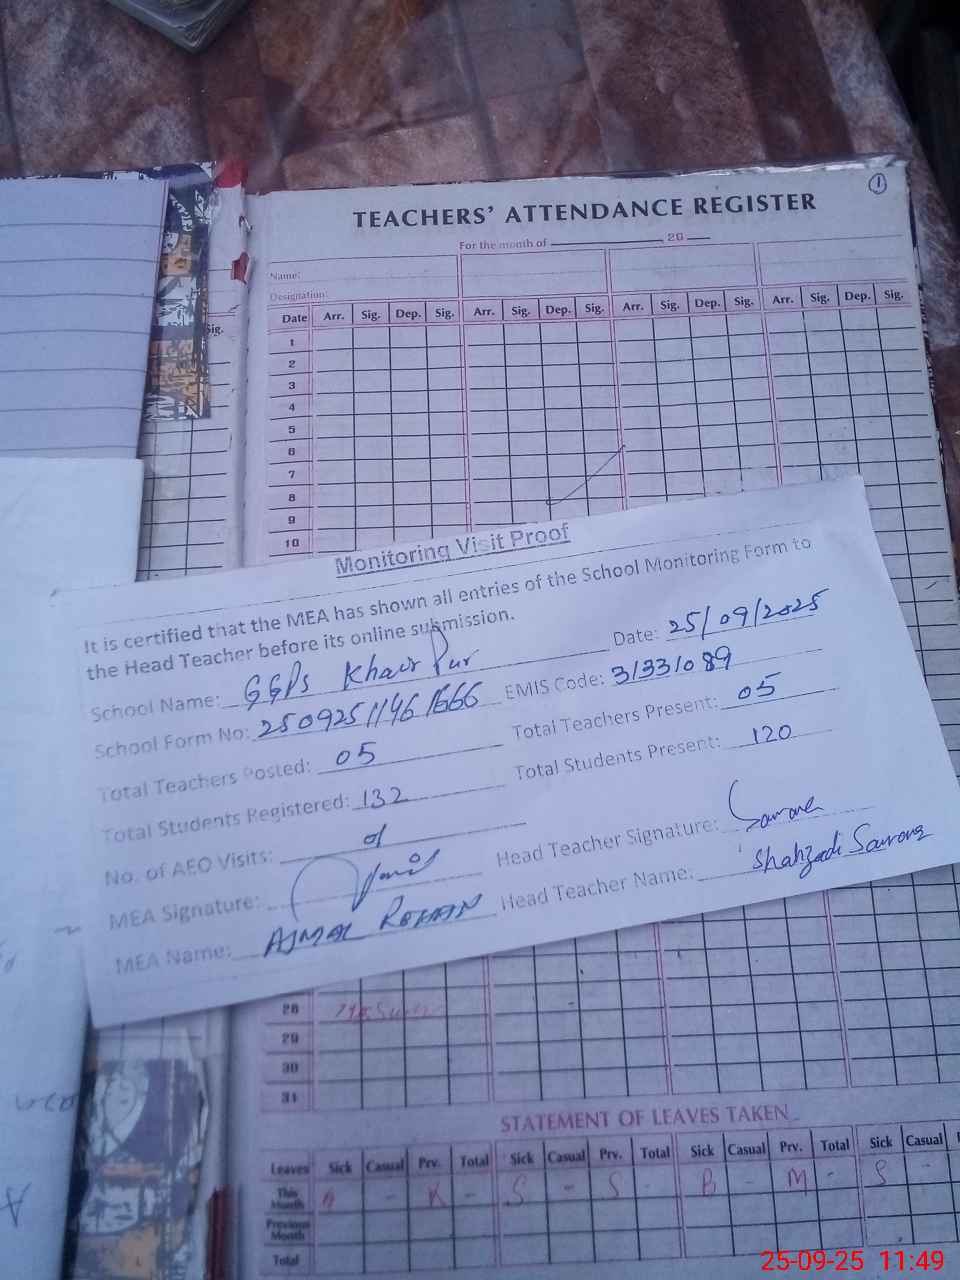 1
TEACHERS' ATTENDANCE REGISTER
For the month of ________, 20 ___
Name:
Designation:
Sig.
Date Arr. Sig. Dep. Sig. Arr. Sig. Dep. Sig. Arr. Sig. Dep. Sig. Arr. Sig. Dep. Sig.
1
2
3
4
5
6
7
8
9
10
Monitoring Visit Proof
It is certified that the MEA has shown all entries of the School Monitoring Form to
the Head Teacher before its online submission.
Date: 25/09/2025
School Name: GGPS Khair Pur
EMIS Code: 31331089
School Form No: 25092511461666
Total Teachers Present: 05
Total Teachers Posted: 05
Total Students Present: 120
Total Students Registered: 132
No. of AEO Visits: 01
Head Teacher Signature:
MEA Signature:
Head Teacher Name: Shahzadi
MEA Name: AJMAL
28
29
30
31
STATEMENT OF LEAVES TAKEN
Leaves Sick Casual Prv. Total Sick Casual Prv. Total Sick Casual Prv. Total Sick Casual
This Month - K - S - S - B - M - S -
Previous Month
Total
25-09-25 11:49